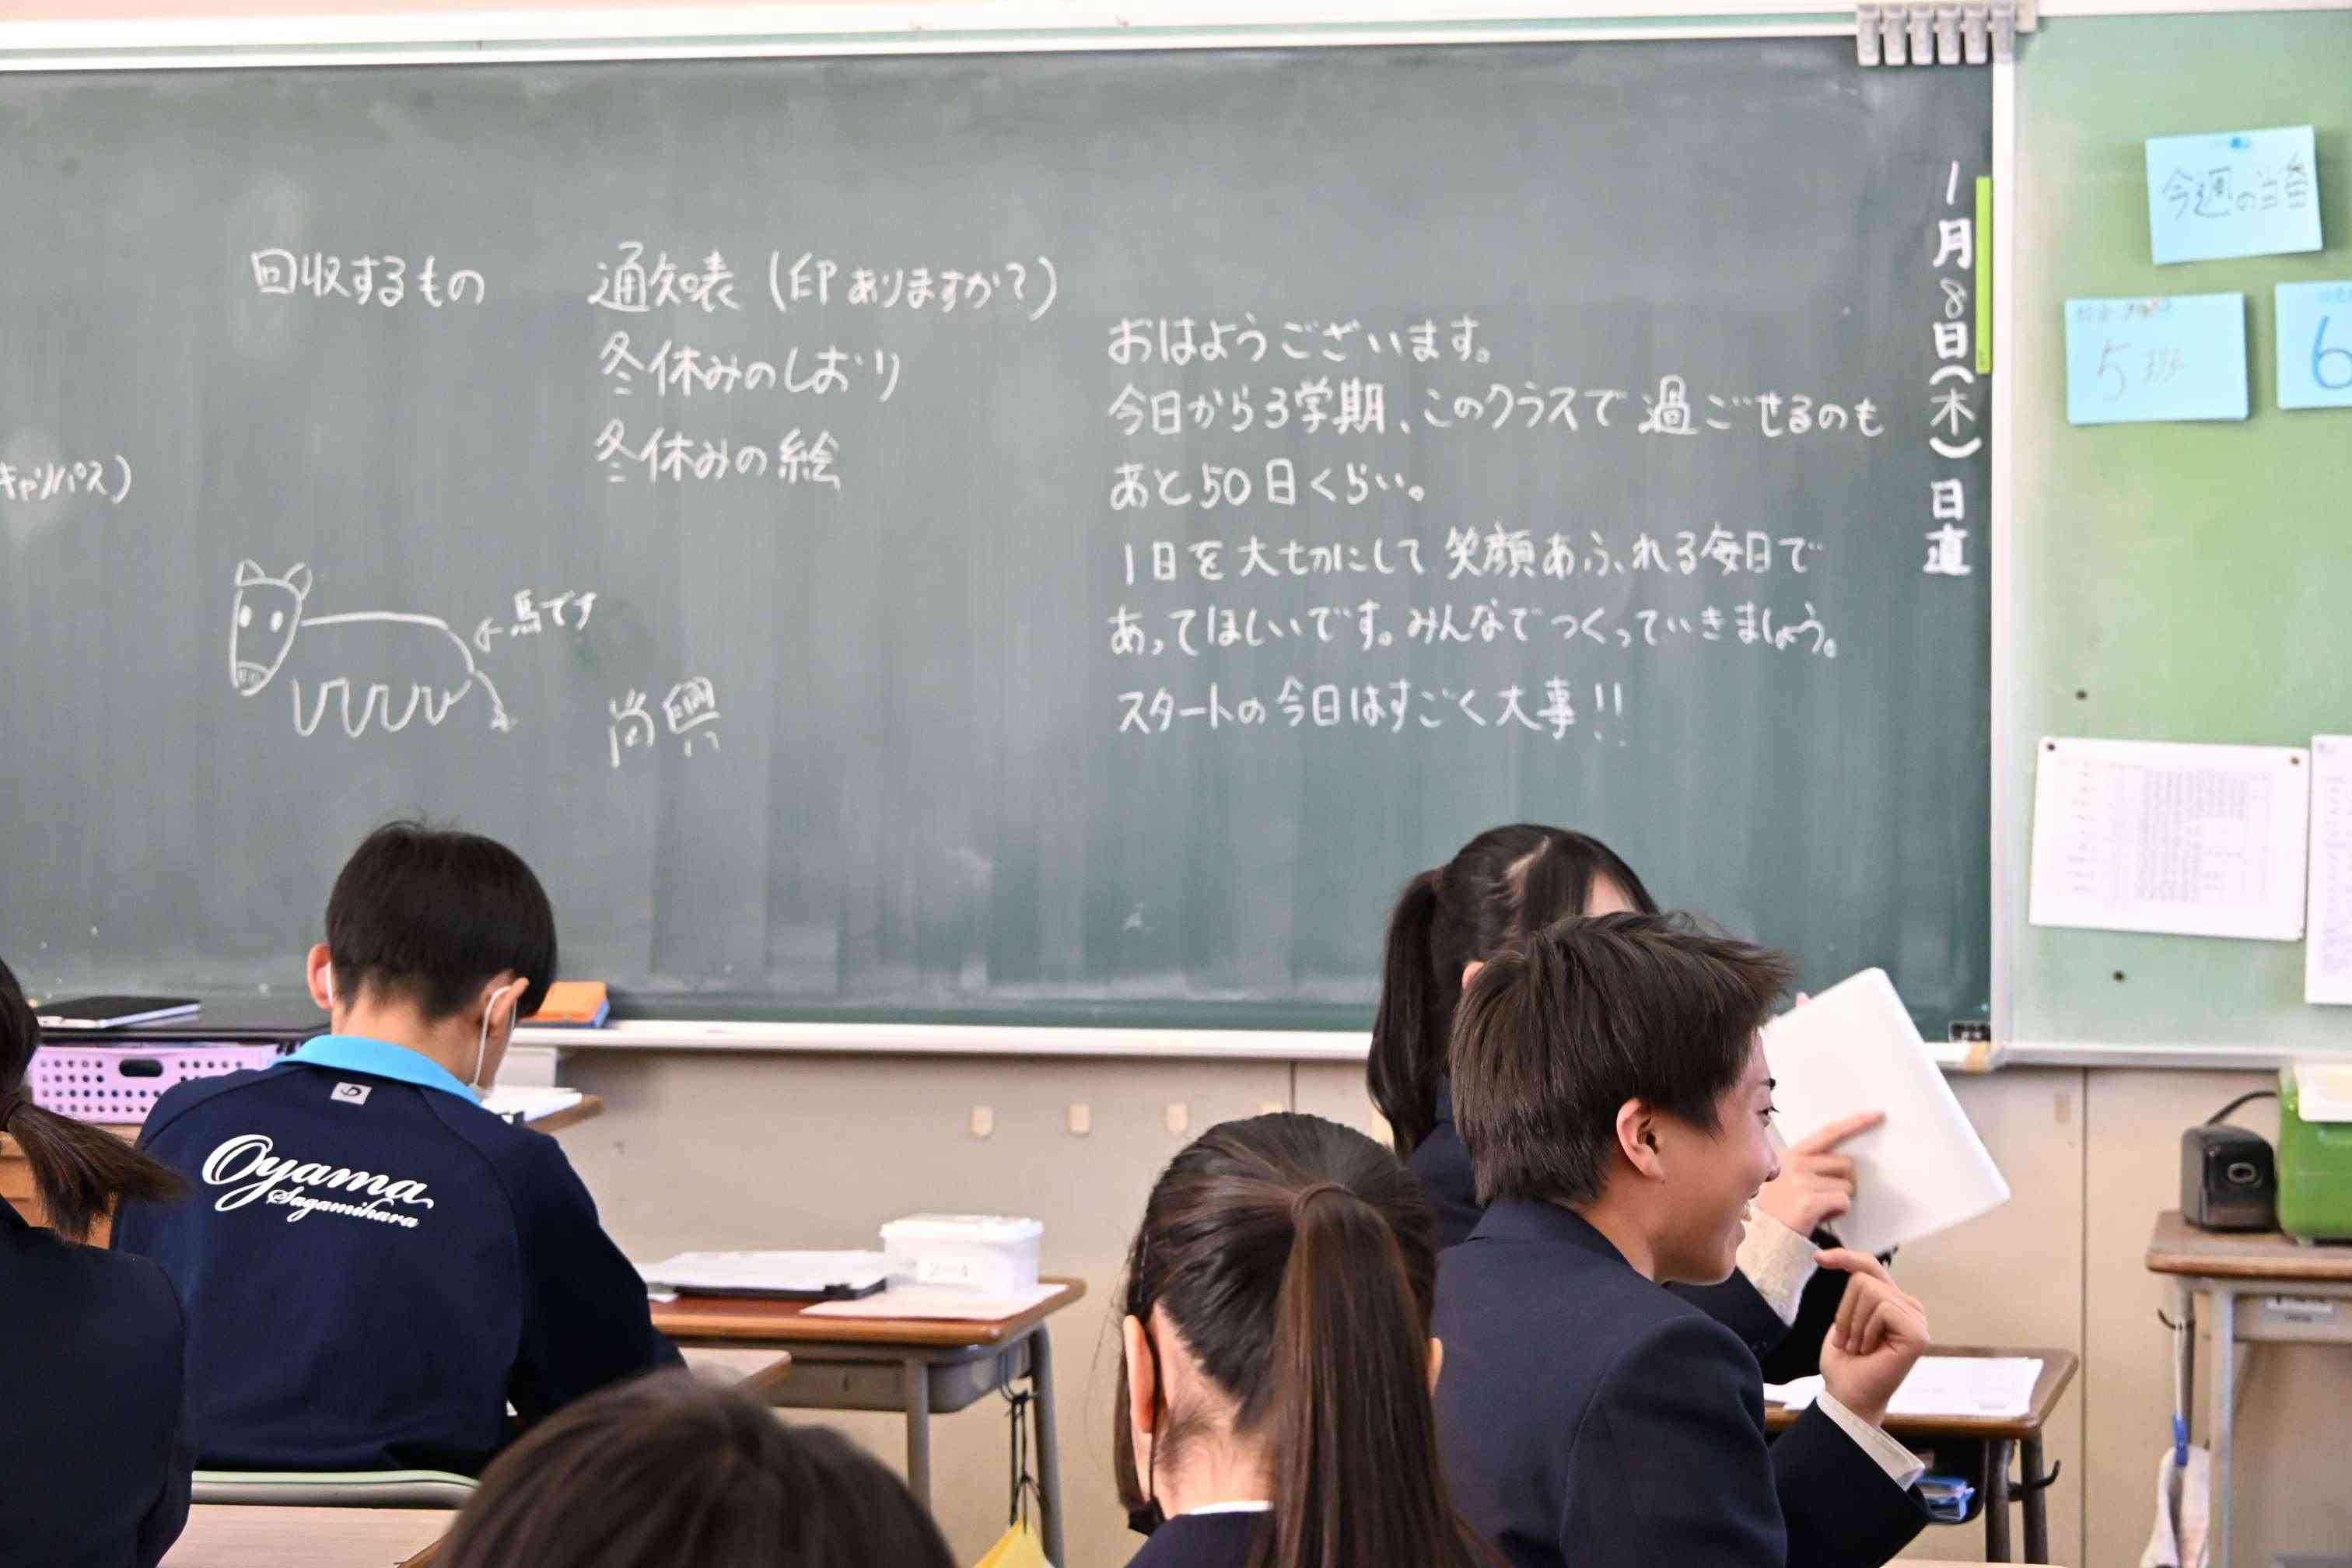 1月8日(木) 日直
おはようございます。
今日から3学期、このクラスで過ごせるのも
あと50日くらい。
1日を大切にして笑顔あふれる毎日で
あってほしいです。みんなでつくっていきましょう。
スタートの今日はすごく大事!!
回収するもの 通知表(印ありますか?)
冬休みのしおり
冬休みの絵
キャリパス)
←馬です
今週の当番
5班
6
Oyama
Sagamihara